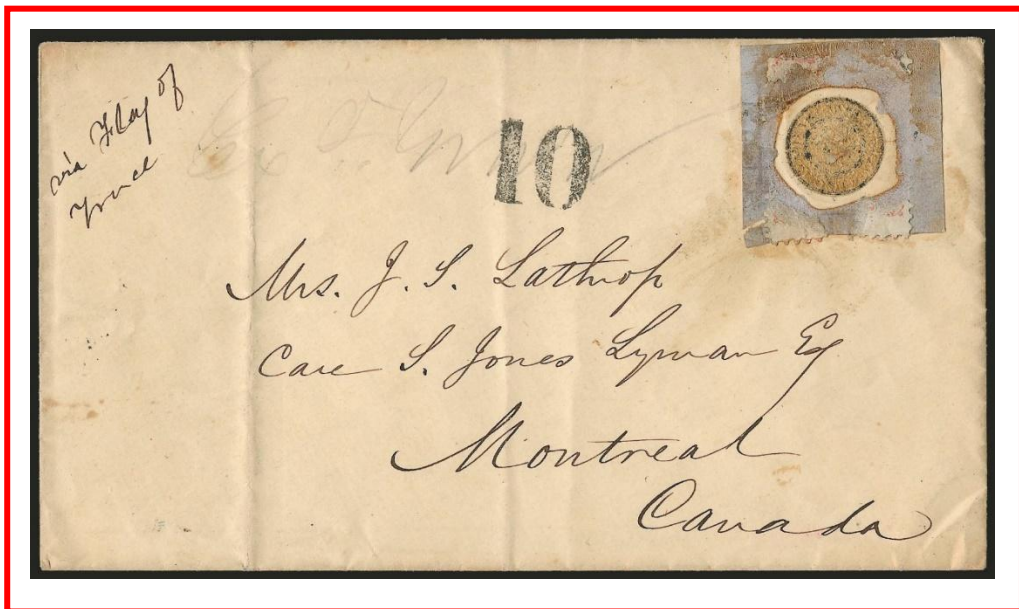 via Flag of
Truce
10
Mrs. J. S. Lathrop
Care S. Jones Lyman Esq
Montreal
Canada